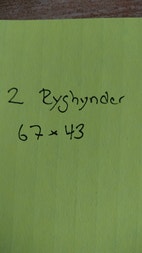 2 Ryghynder
67 × 43